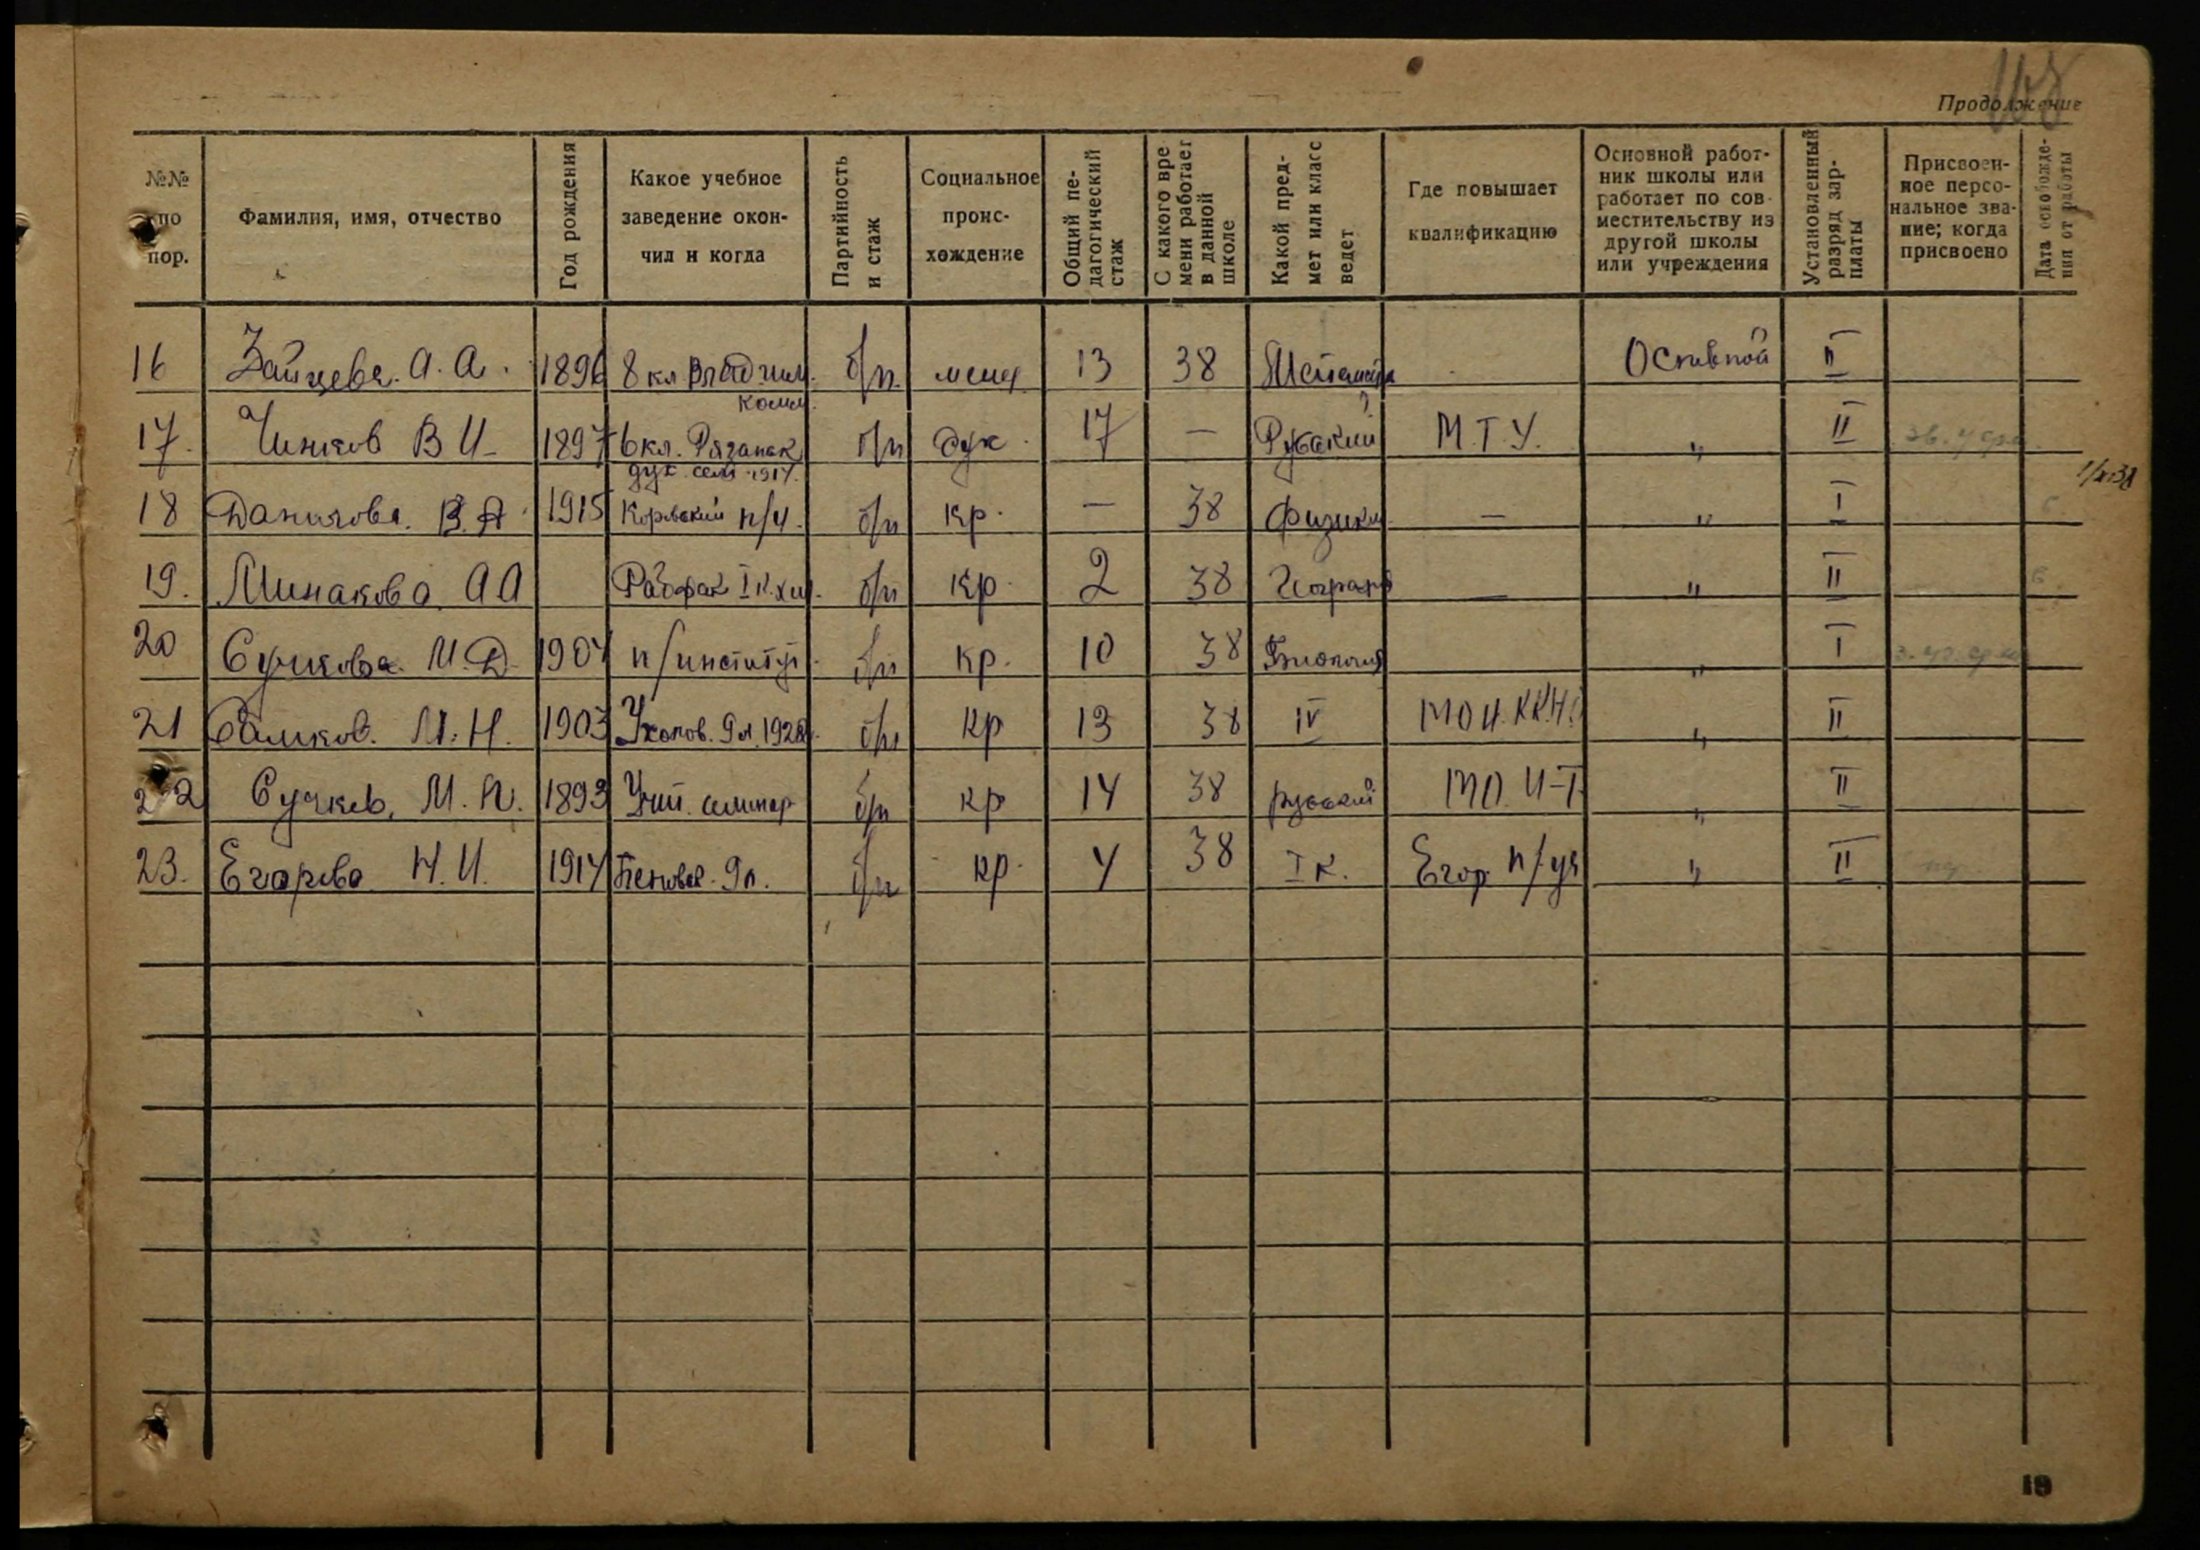 Продолжение
№№ по пор. Фамилия, имя, отчество Год рождения Какое учебное заведение окончил и когда Партийность и стаж Социальное происхождение Общий педагогический стаж С какого времени работает в данной школе Какой предмет или класс ведет Где повышает квалификацию Основной работник школы или работает по совместительству из другой школы или учреждения Установленный разряд зарплаты Присвоенное персональное звание; когда присвоено Дата освобождения от работы
16 Зайцева А. А. 1896 8 кл б/п. мещ 13 38 Основной II
17. Чинков В И 1897 6 кл. Рязанск дух. сем 1917. б/п дух. 17 — Русский М.Т.У. " II
18 Данилова. В. А. 1915 п/и. б/п кр. — 38 физики — " I
19. Минакова АА Рабфак I к. б/п кр. 2 38 Географ — " II
20 Сучкова М.Д 1907 п/институт. б/п кр. 10 38 Биология " I
21 М. Н. 1903 9 л. 1928 б/п кр 13 38 IV " II
22 Сучков, М. П. 1893 Учит. семинар б/п кр 14 38 русский МО. И-Т " II
23. Егорова Н. И. 1914 9 л. б/п кр. 4 38 I к. Егор. п/уч " II
19